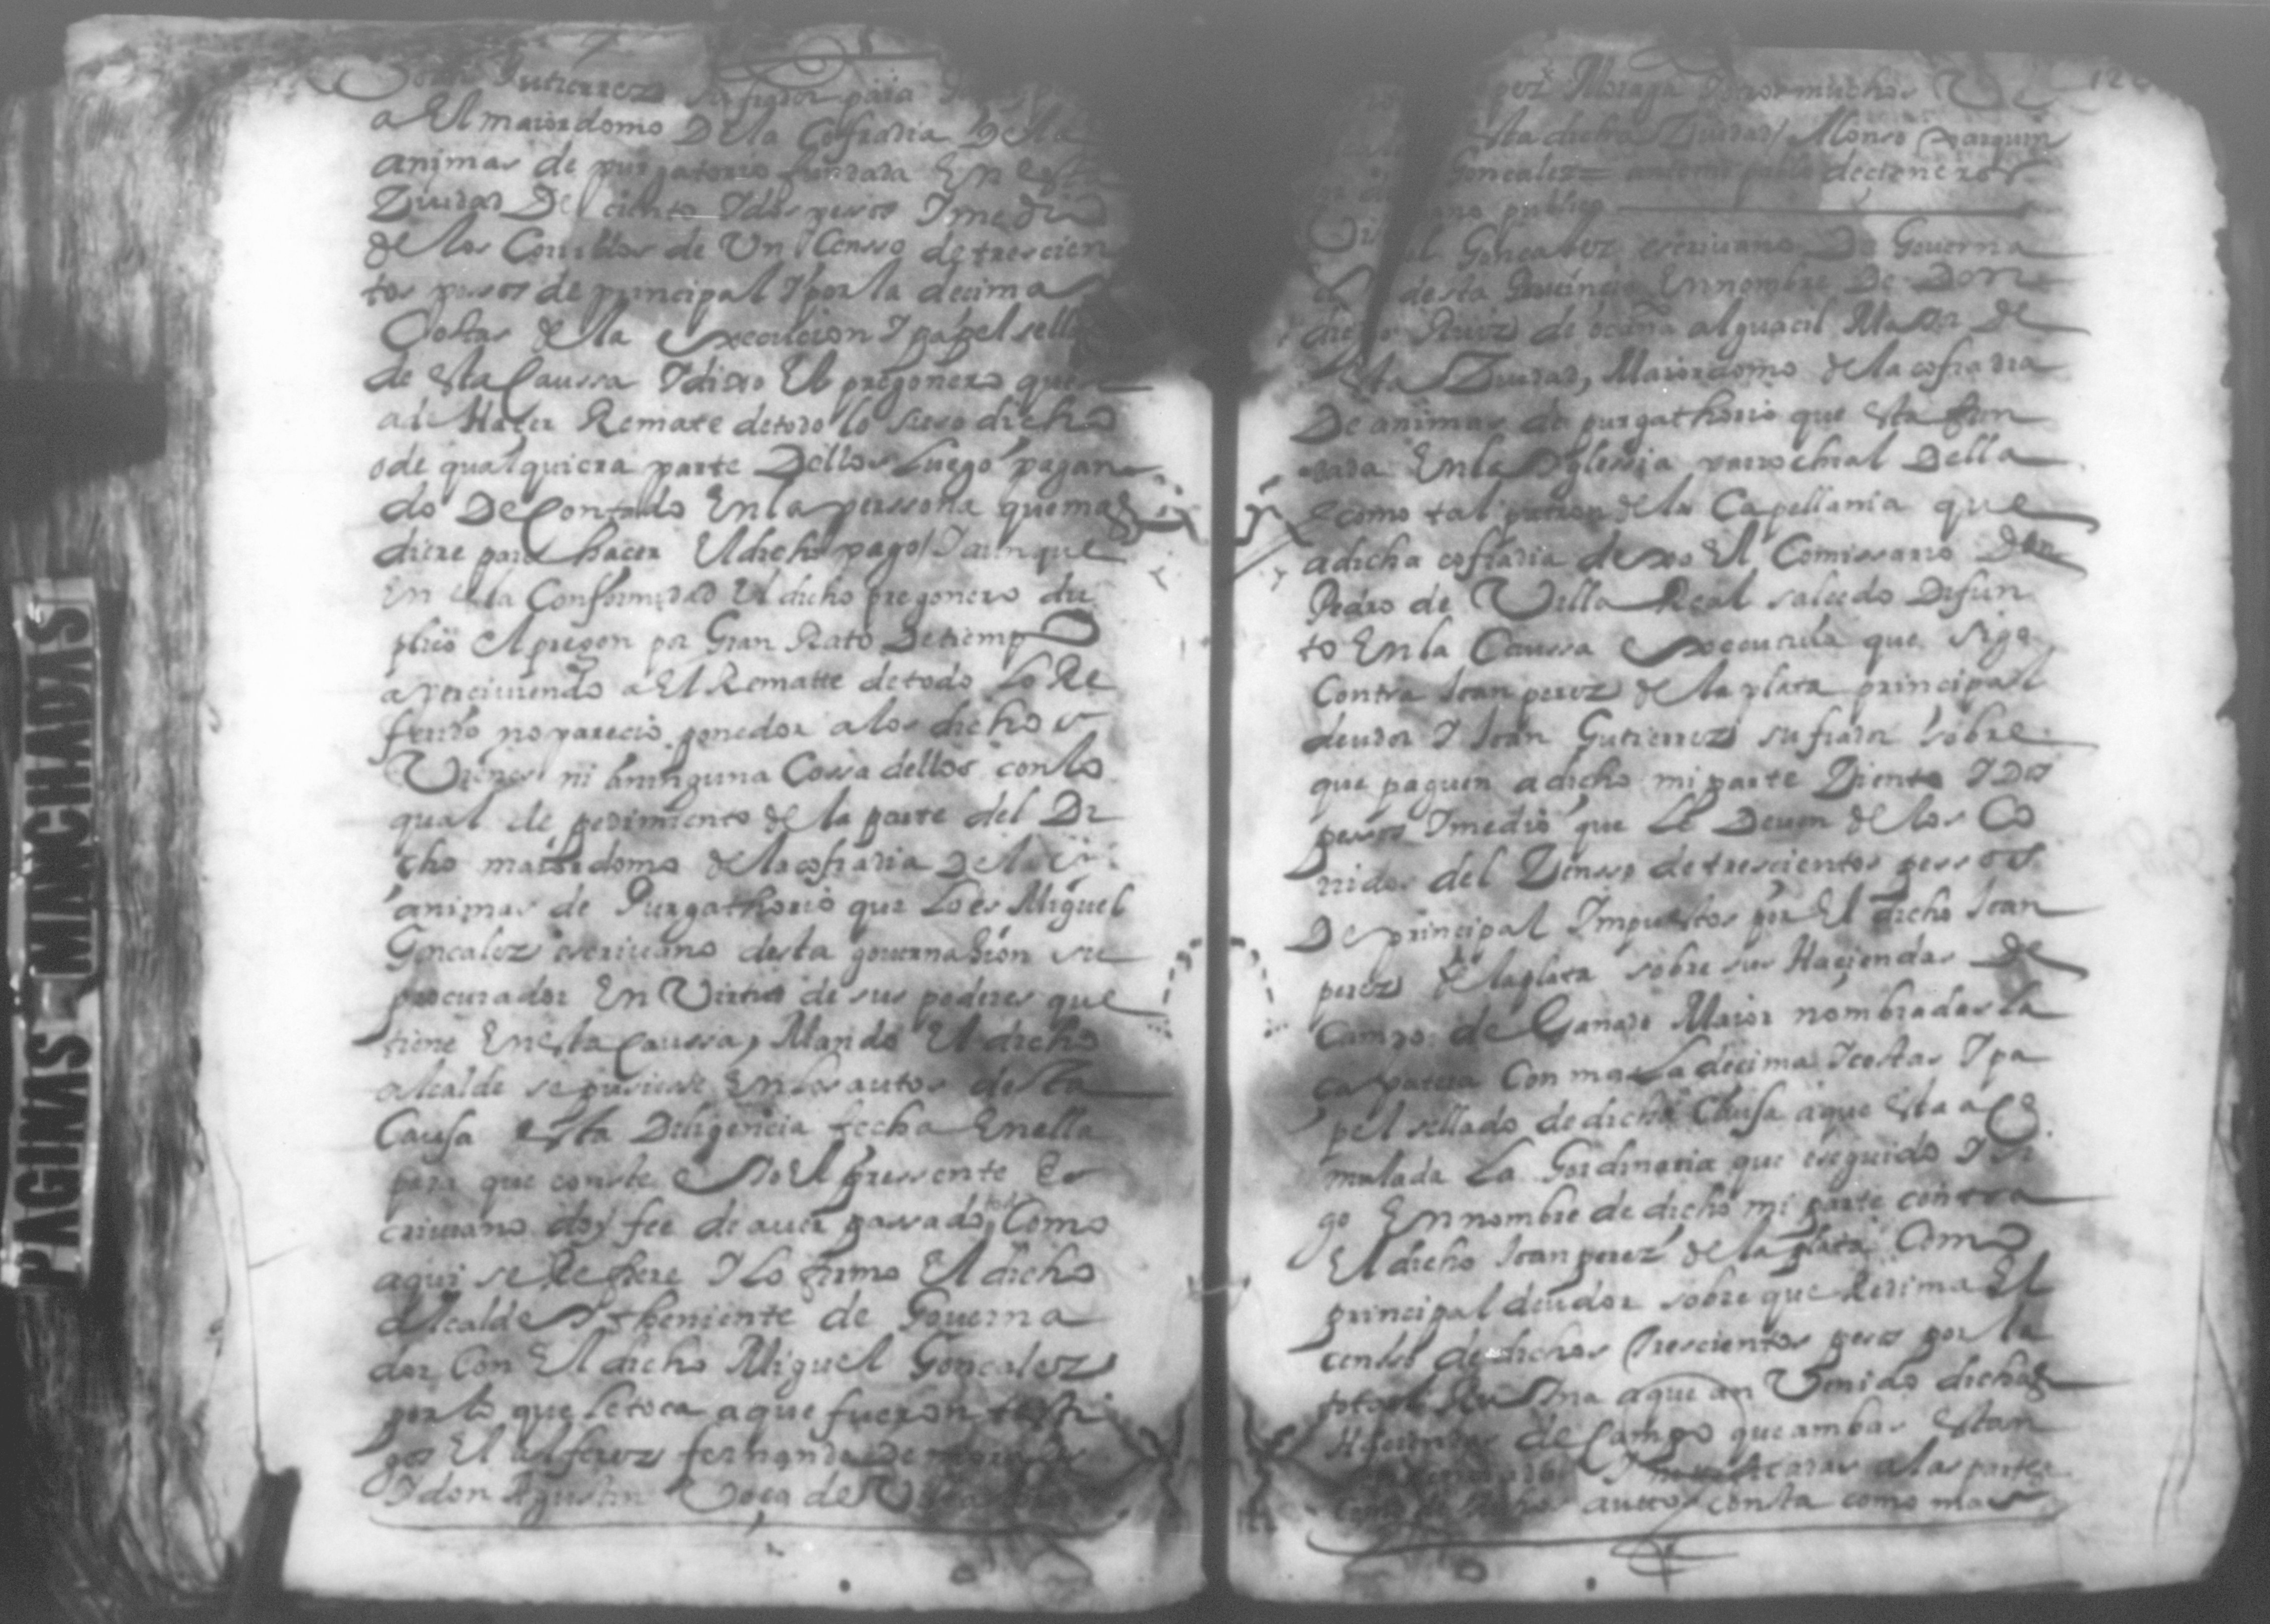 PAGINAS MANCHADAS
Joan Gutierrez su fiador para
a El maiordomo De la Cofradia De la
animas de purgatorio fundada En esta
Ziudad De ciento Idos pesos Imedio
de los Corridos de Un Censso de trescien
tos pesos de principal I por la decima
Costas de la execucion I papel sella
de esta Caussa I dixo El pregonero que
a de Hacer Remate detodo lo suso dicho
o de qualquiera parte Dellos Luego pagan
do De Contado En la perssona que
diere para hacer El dicho pago I aunque
En esta Conformidad El dicho pregonero du
plico El pregon por Gran Rato De tiempo
aperciuiendo a El Rematte de todo Lo Re
ferido no parecio ponedor a los dichos
Vienes ni a ninguna Cossa dellos con lo
qual de pedimiento de la parte del Di
cho maiordomo de la cofradia De las
animas de Purgathorio que Lo es Miguel
Goncalez escriuano desta gouernasion su
procurador En Virtud de sus poderes que
tiene En esta Caussa, Mando El dicho
alcalde se pusiese En los autos desta
Causa esta Diligencia fecha En ella
para que conste e Yo El pressente Es
criuano doy fee de auer passado todo Como
aqui se Refiere I Lo firmo El dicho
alcalde I theniente de Gouerna
dor Con El dicho Miguel Goncalez
por lo que le toca a que fueron testi
gos El alferez fernando de
I don Agustin de
perez Moraga I otros muchos
esta dicha Ziudad Alonso
Goncalez antemi pablo decisneros
escriuano publico
Goncalez escriuano De Gouerna
desta Prouincia En nombre De Don
diego Ruiz de ocaña alguacil Maior De
esta Ziudad, Maiordomo de la cofradia
De animas de purgathorio que esta fun
dada En la Yglessia parrochial Della
e como tal patron de la Capellania que
a dicha cofradia dexo El Comissario Don
Pedro de Villa Real salcedo Difun
to En la Caussa executiua que sigo
Contra Joan perez de la plata principal
deudor I Joan Gutierrez su fiador sobre
que paguen a dicho mi parte Ziento I Dos
pessos I medio que Le Deuen de los Co
rridos del Zensso de trescientos pessos
De principal Impuestos por El dicho Joan
perez de la plata sobre sus Haciendas De
Campo de Ganado Maior nombradas la
Con mas La decima I costas I pa
pel sellado de dicha Causa a que esta acu
mulada La hordinaria que e seguido I si
go En nombre de dicho mi parte contra
El dicho Joan perez de la plata Como
principal deudor sobre que Redima El
censso de dichos trescientos pesos por la
total Ruina a que an Venido dichas
Haciendas de Campo que ambas estan
I notificadas a las partes
Como de dichos auttos consta como mas